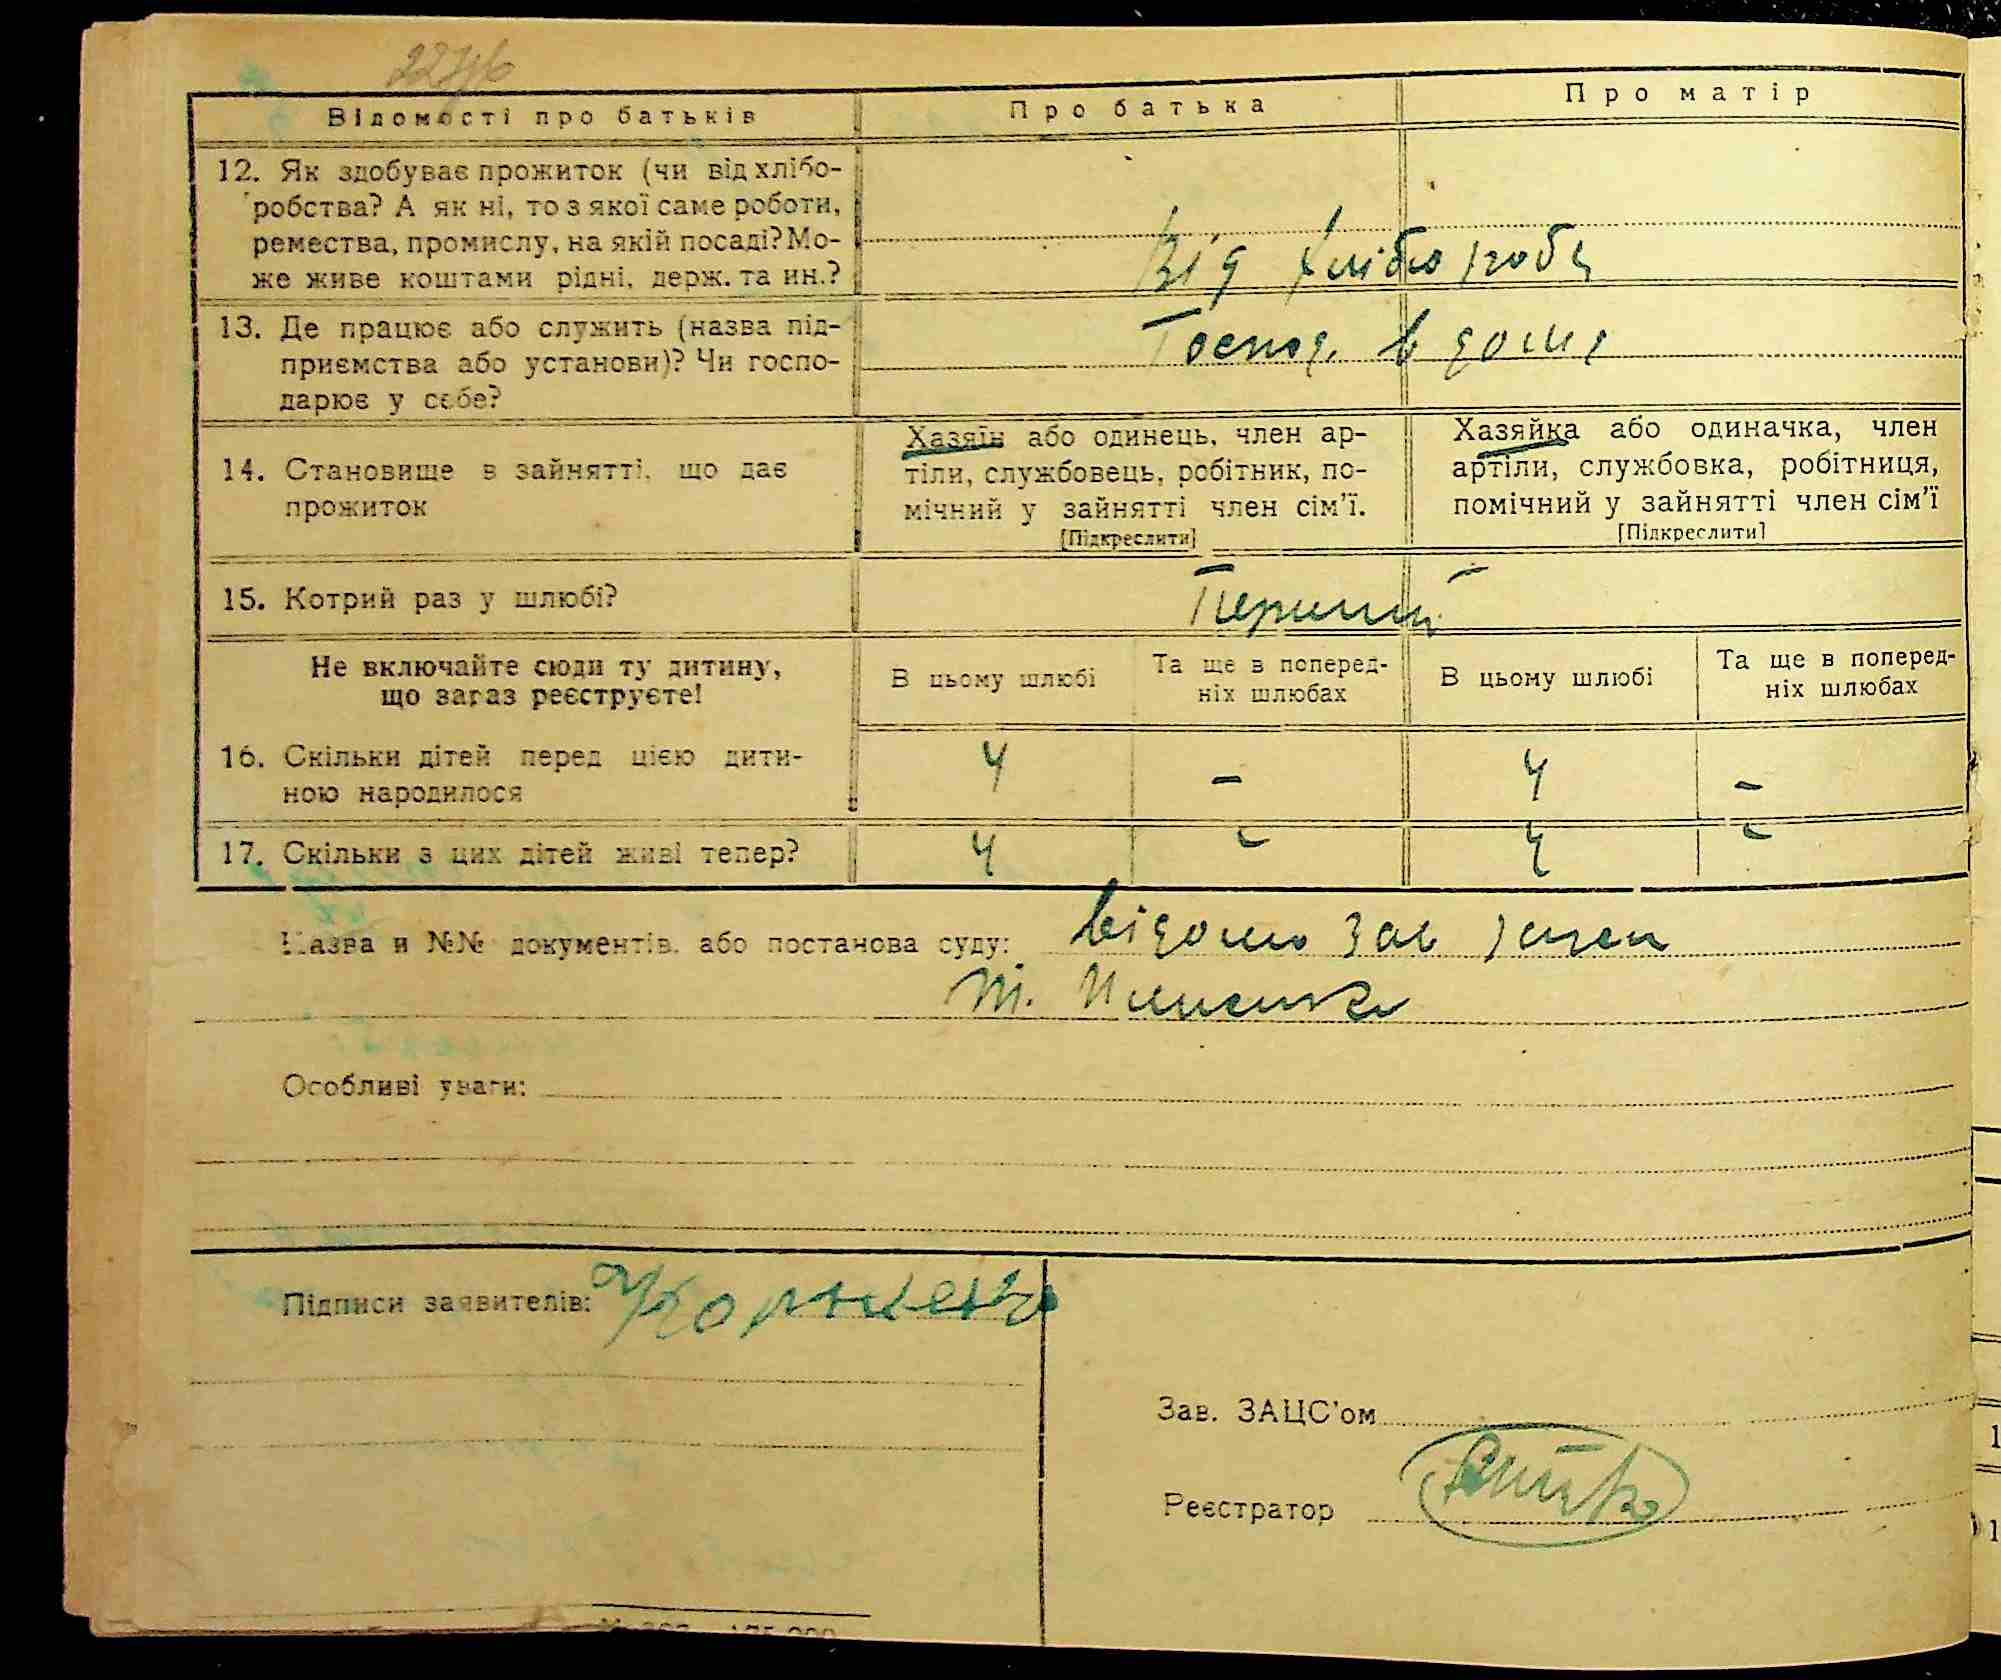 227зв
Відомості про батьків
Про батька
Про матір
12. Як здобуває прожиток (чи від хлібо-
робства? А як ні, то з якої саме роботи,
ремества, промислу, на якій посаді? Мо-
же живе коштами рідні, держ. та ин.?
Від хлібороб
13. Де працює або служить (назва під-
приємства або установи)? Чи госпо-
дарює у себе?
Господ. в дома
14. Становище в зайнятті, що дає
прожиток
Хазяїн або одинець, член ар-
тіли, службовець, робітник, по-
мічний у зайнятті член сім'ї.
[Підкреслити]
Хазяйка або одиначка, член
артіли, службовка, робітниця,
помічний у зайнятті член сім'ї
[Підкреслити]
15. Котрий раз у шлюбі?
Перший
Не включайте сюди ту дитину,
що зараз реєструєте!
В цьому шлюбі
Та ще в поперед-
ніх шлюбах
В цьому шлюбі
Та ще в поперед-
ніх шлюбах
16. Скільки дітей перед цією дити-
ною народилося
4 - 4 -
17. Скільки з цих дітей живі тепер?
4 - 4 -
Назва и №№ документів, або постанова суду: відомо зав
т.
Особливі уваги:
Підписи заявителів:
Зав. ЗАЦС'ом
Реєстратор